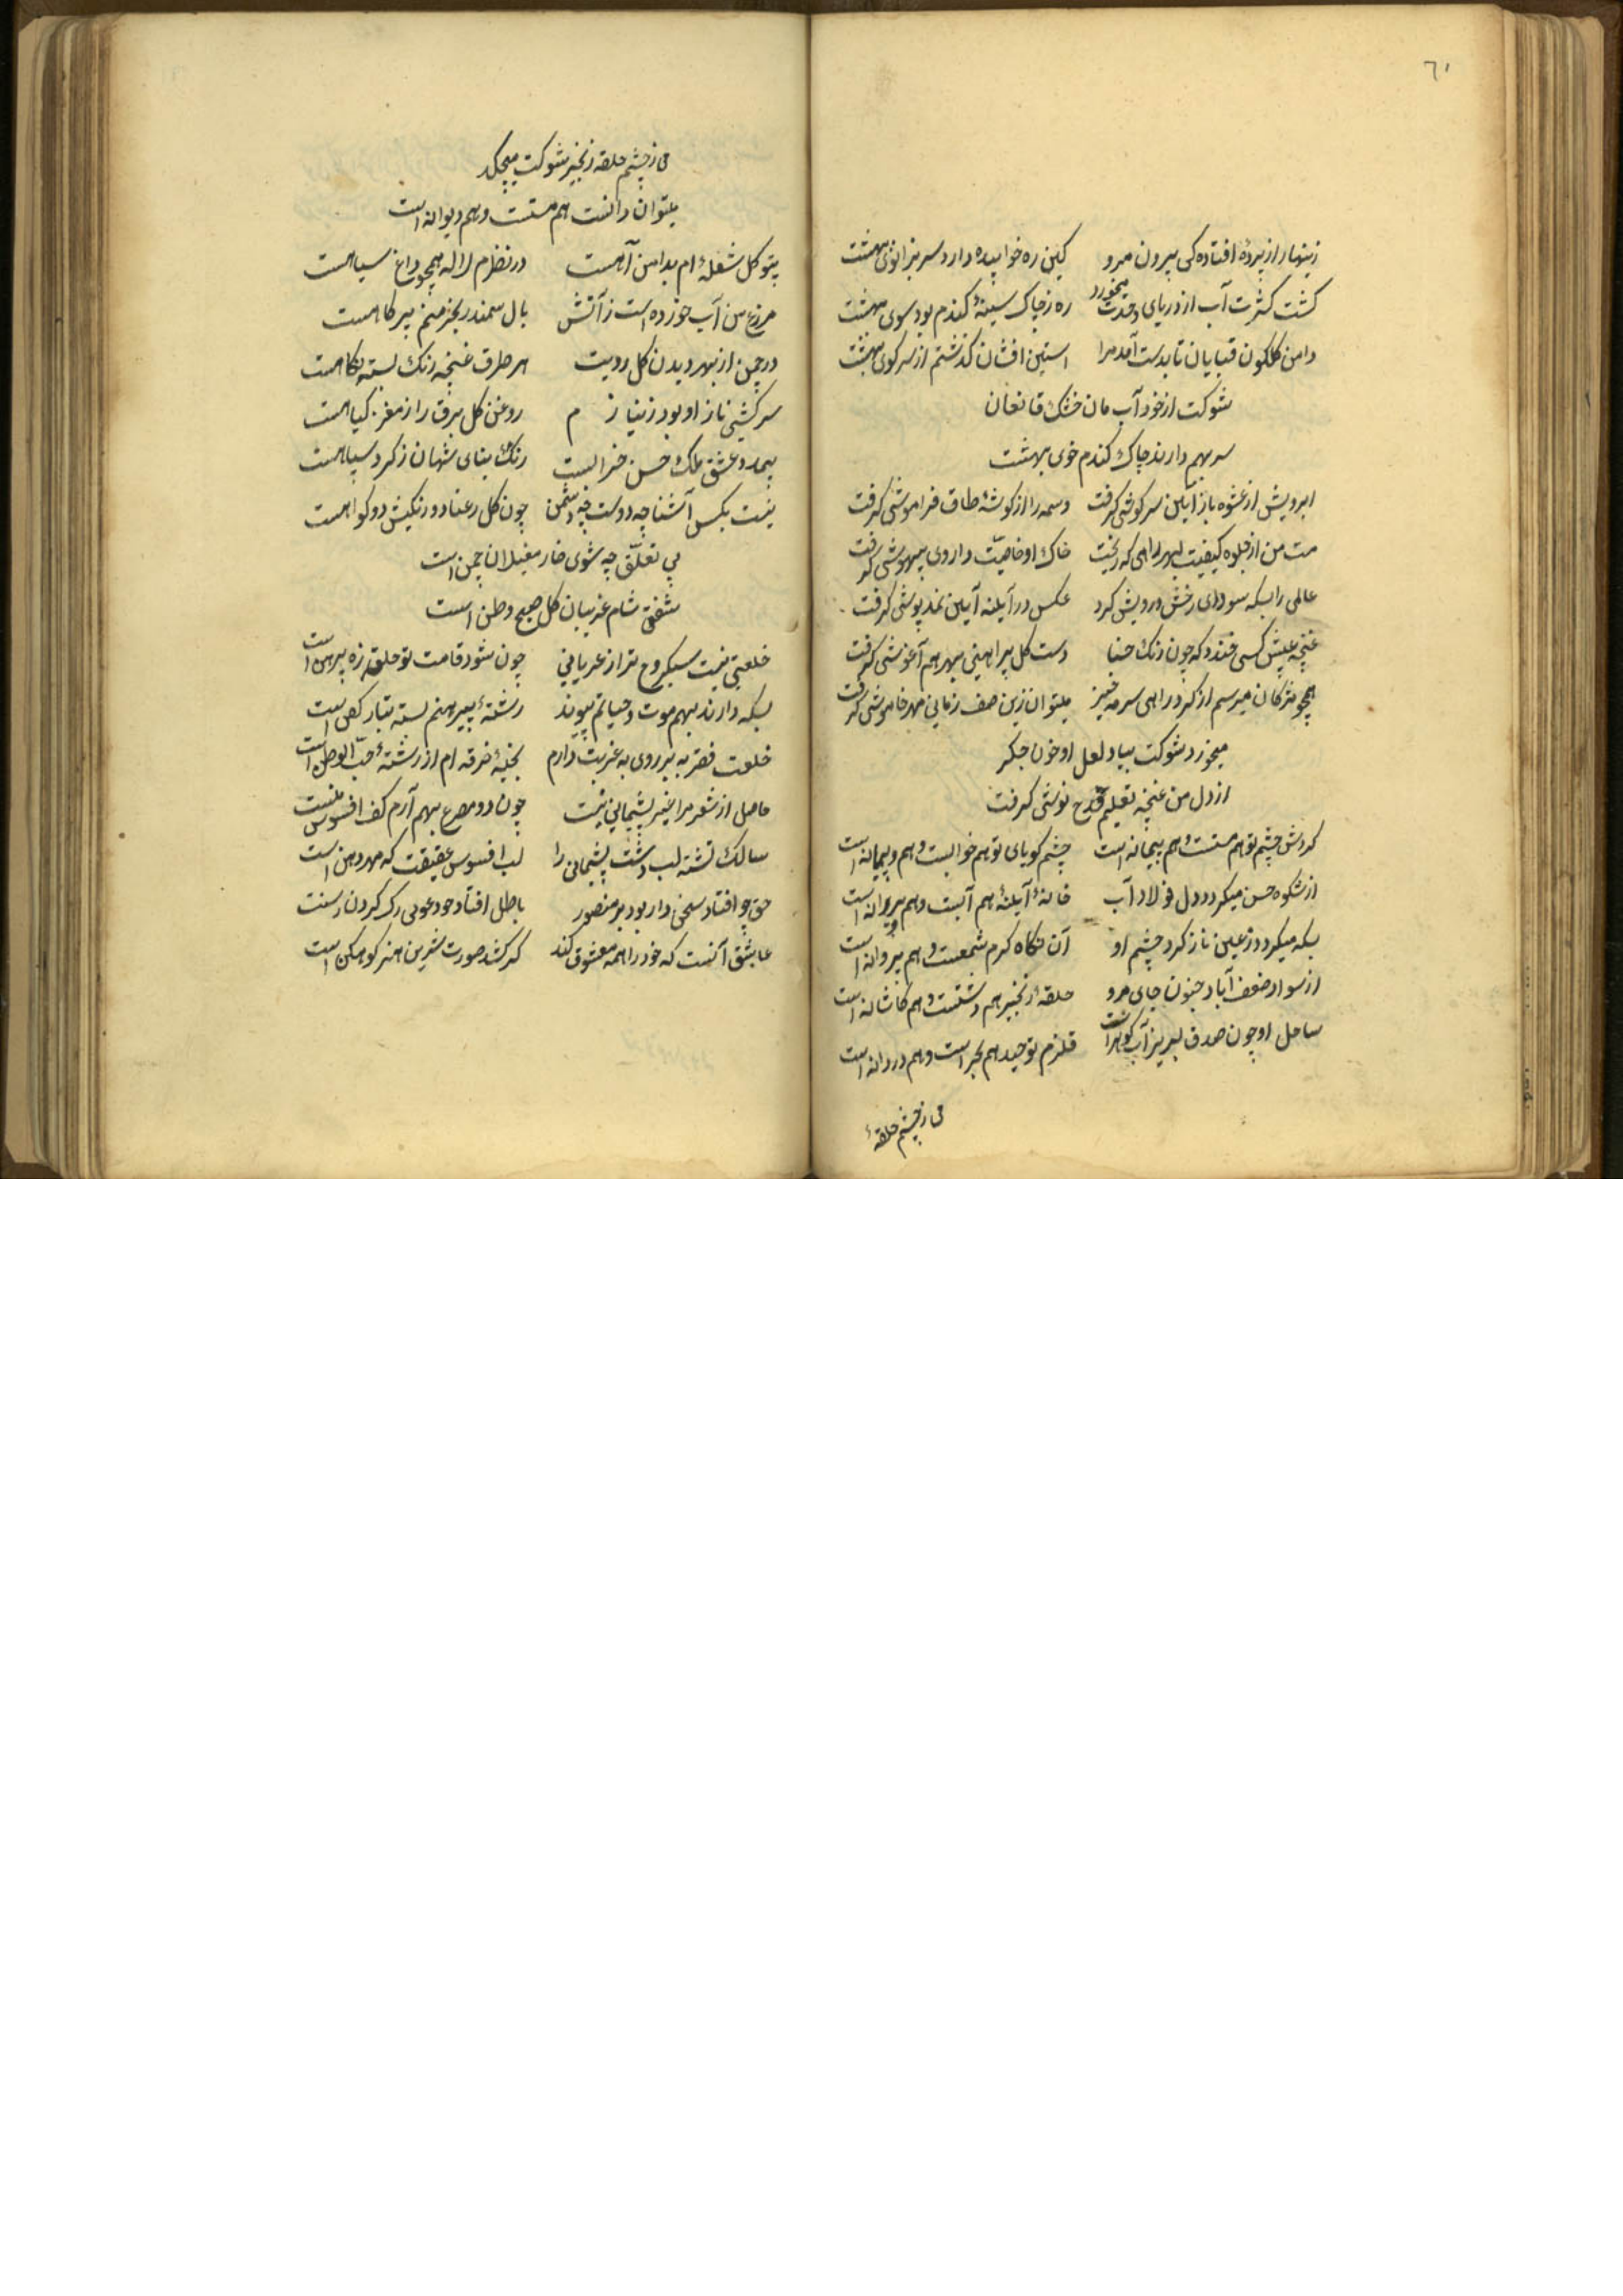 ٦١
زینهار از پردهٔ افتاده کی بیرون مرو کین ره خوابیده دارد سر بزانوی بهشت
کشت کثرت آب از دریای وحدت میخورد ره ز چاک سینهٔ کندم بود سوی بهشت
دامن کلکون قبایان تا بدست آمد مرا استین افشان کذشتم از سر کوی بهشت
شوکت از خود آب مان خشک قانعان
سر بهم دارند چاک کندم خوی بهشت
ابرویش از عشوه باز آیین سرکوشی کرفت وسمه را از کوشهٔ طاق فراموشی کرفت
مست من از جلوه کیفیت بهر راهی که ریخت خاک او خاصیّت داروی بیهوشی کرفت
عالمی را بسکه سودای رخش درویش کرد عکس در آینه آیین نمد پوشی کرفت
غنچه عیش کسی خندد که چون رنک حنا دست کل پیراهنی بهر هم آغوشی کرفت
همچو مژکان میرسم از کرد راهی سرمه خیز میتوان زین صف زمانی مهر خاموشی کرفت
میخورد شوکت بیاد لعل او خون جکر
از دل من غنچه تعلیم قدح نوشی کرفت
کردش چشم تو هم مستست و هم پیمانه است چشم کویای تو هم خوابست و هم پیمانه است
از شکوه حسن میکردد دل فولاد آب خانهٔ آینهٔ هم آبست و هم ویرانه است
بسکه میکردد ز عین ناز کرد چشم او آن نکاه کرم شمعست و هم پروانه است
از سواد ضعف آباد جنون جای مرو حلقهٔ زنجیر هم دشتست و هم کاشانه است
ساحل او چون صدف لبریز آب کوهر است قلزم توحید هم بحر است و هم دردانه است
می ز چشم حلقهٔ
می ز چشم حلقه زنجیر شوکت میچکد
میتوان دانست هم مستست و هم دیوانه است
پیتو کل شعلهٔ ام بدامن آهست در نظرم لاله همچو داغ سیاهست
مزرع من آب خورده است ز آتش بال سمندر بخرمنم پر کاهست
در چمن از بهر دیدن کل رویت هر طرف غنچه رنک بسته نکاهست
سرکشی ناز او بود ز نیاز م روغن کل برق را ز مغز کیاهست
بیمدد عشق ملک حسن خرابست رنک بنای شهان ز کرد سپاهست
نیست بکس آشنا چه دوست چه دشمن چون کل رعنا دو رنکیش دو کواهست
بی تعلّق چه شوی خار مغیلان چمن است
شفق شام غریبان کل صبح وطن است
خلعتی نیست سبکروح تر از عریانی چون شود قامت تو حلقه زه پیرهن است
بسکه دارند بهم موت و حیاتم پیوند رشتهٔ پیرهنم بسته بتار کفن است
خلعت فقر به بر روی به غربت دارم بخیهٔ خرقه ام از رشتهٔ حبّ الوطن است
حاصل از شعر مرا غیر پشیمانی نیست چون دو مصرع بهم آرم کف افسوس منست
سالک تشنه لب دشت پشیمانی را لب افسوس عقیقت که مهر دهن است
حق چو افتاد سخن دار بود بر منصور باطل افتاد چو دعوی رک کردن رسنت
عاشق آنست که خود را همه معشوق کند کر کشد صورت شیرین هنر کوهکن است